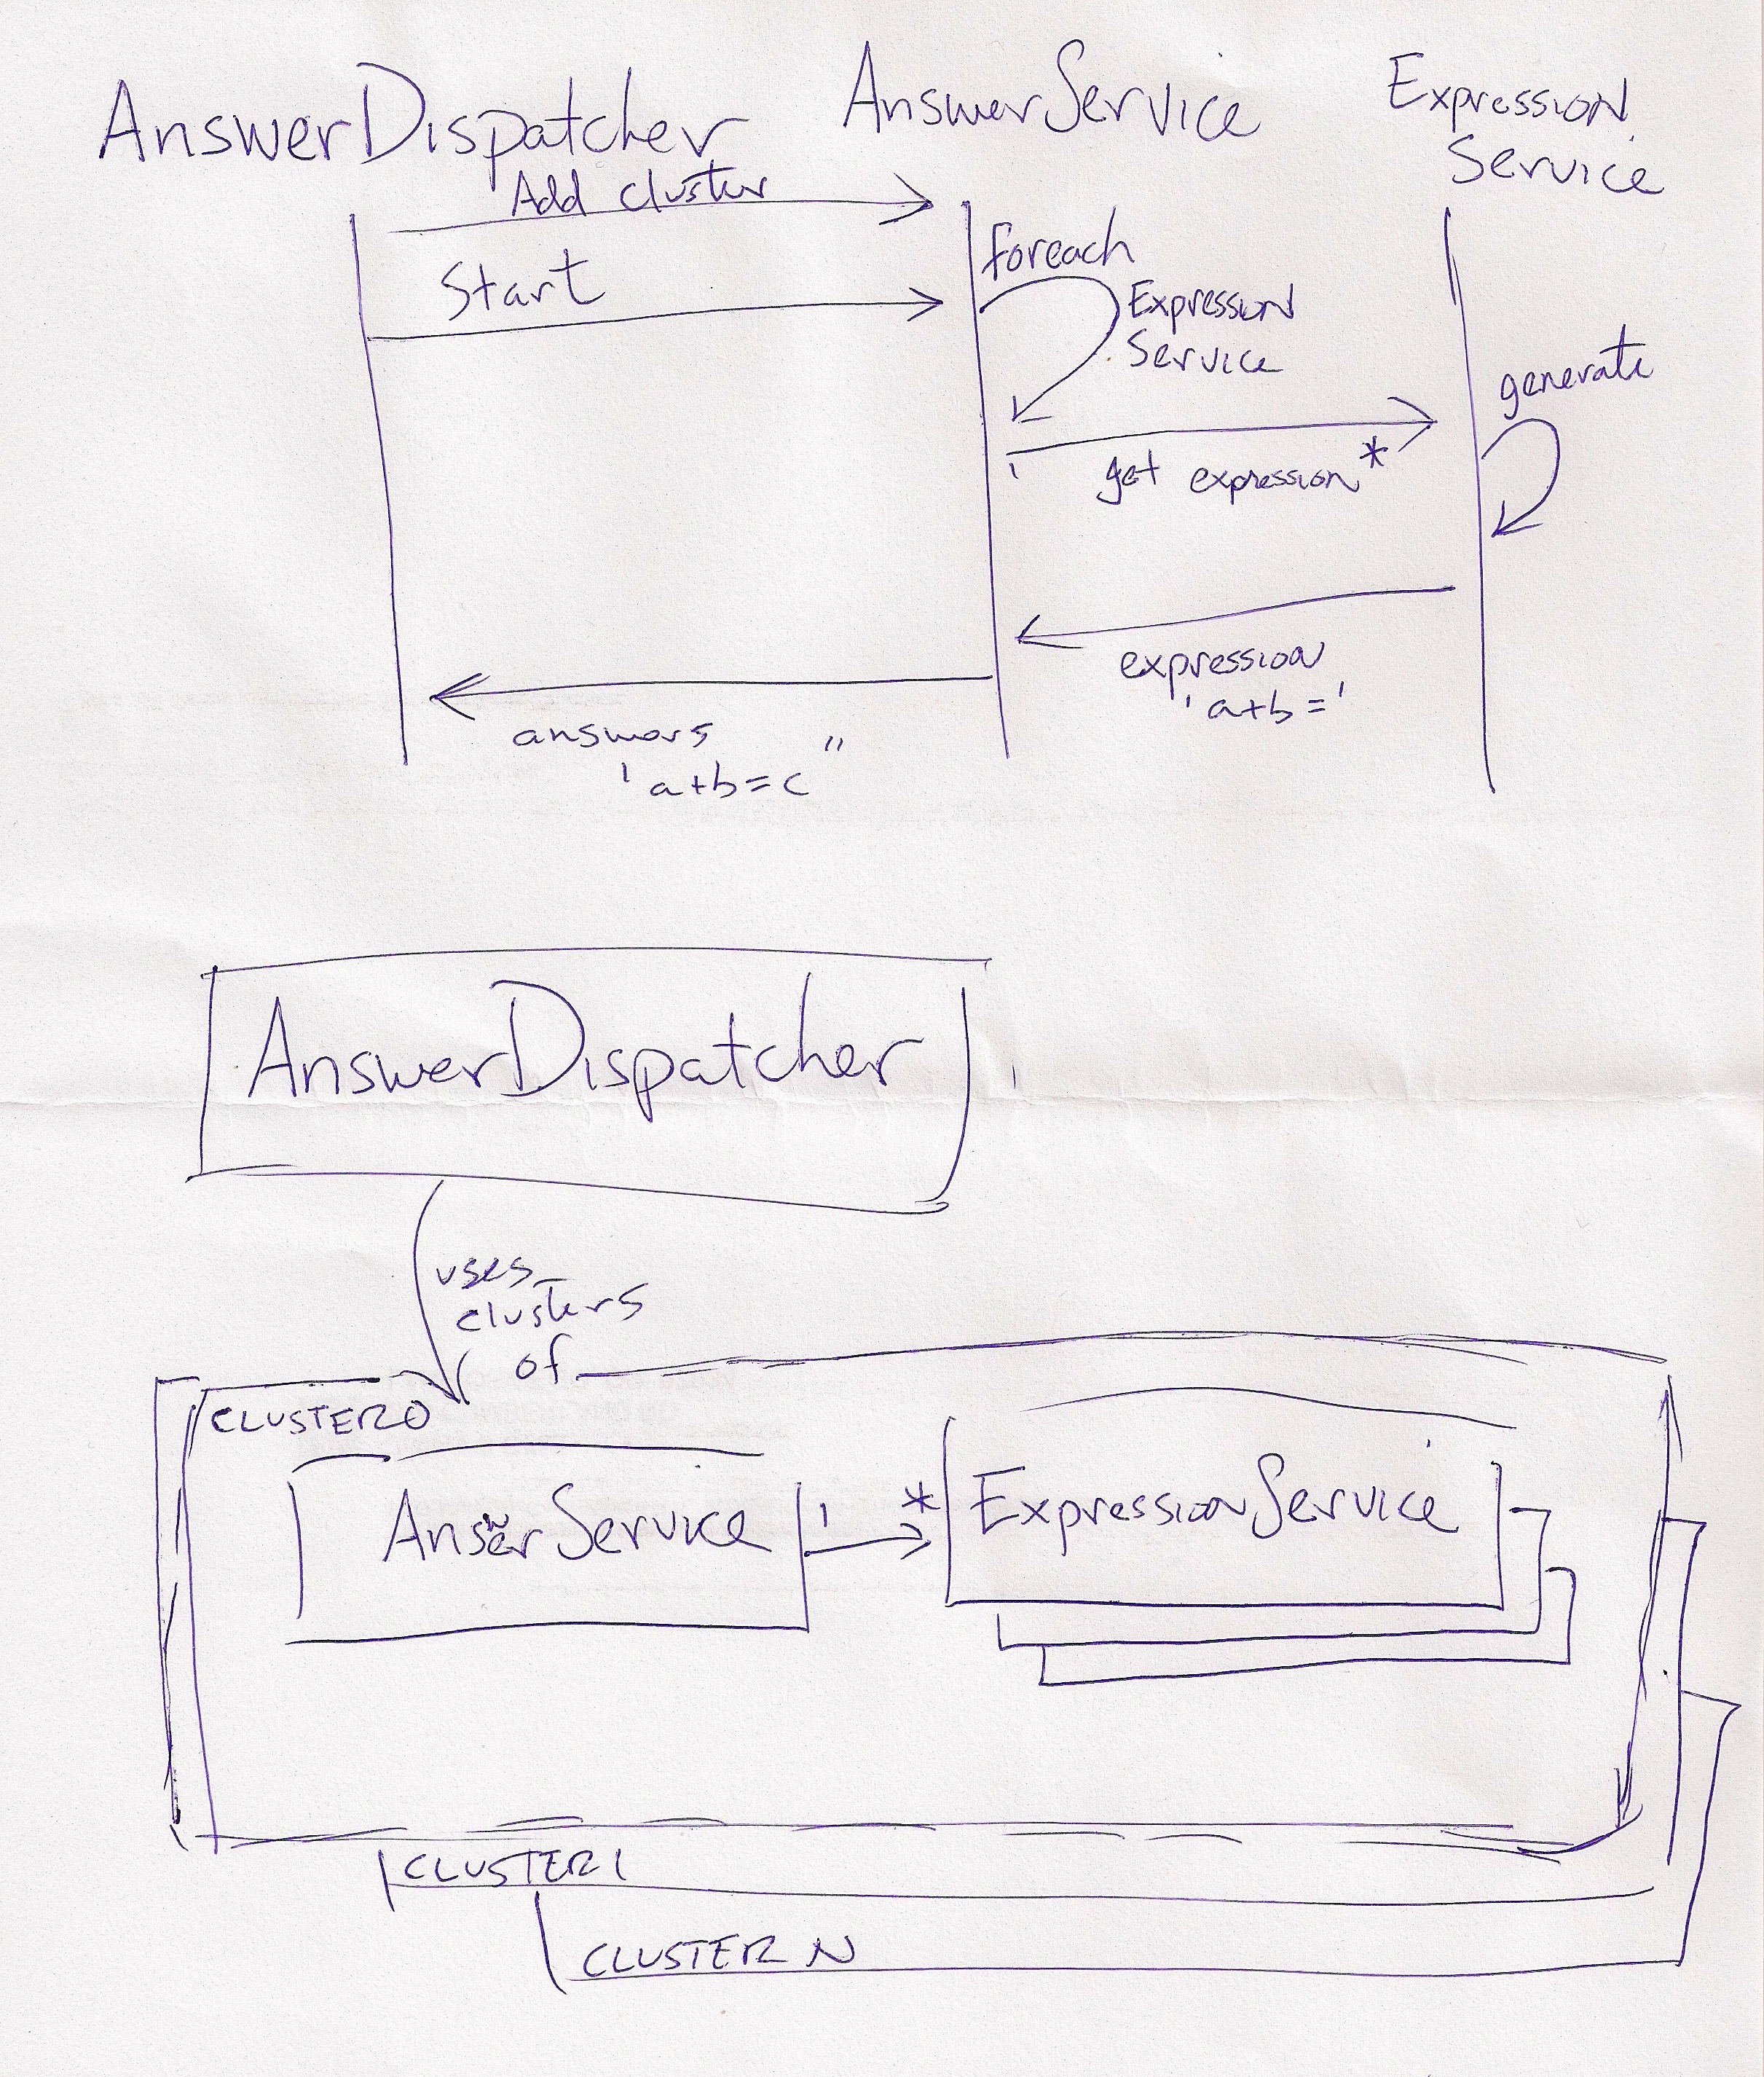 AnswerDispatcher
AnswerService
Expression
Service
Add cluster
Start
foreach
Expression
Service
generate
get expression*
expression
'a+b='
answers "
'a+b=c
AnswerDispatcher
uses
clusters
of
CLUSTER0
AnswerService
1
*
ExpressionService
CLUSTER1
CLUSTER N